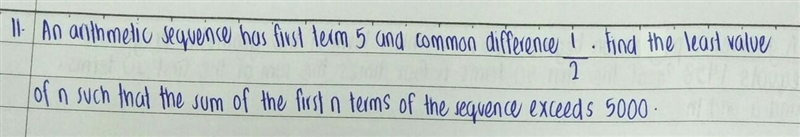 11. An arithmetic sequence has first term 5 and common difference 1/2. Find the least value
of n such that the sum of the first n terms of the sequence exceeds 5000.